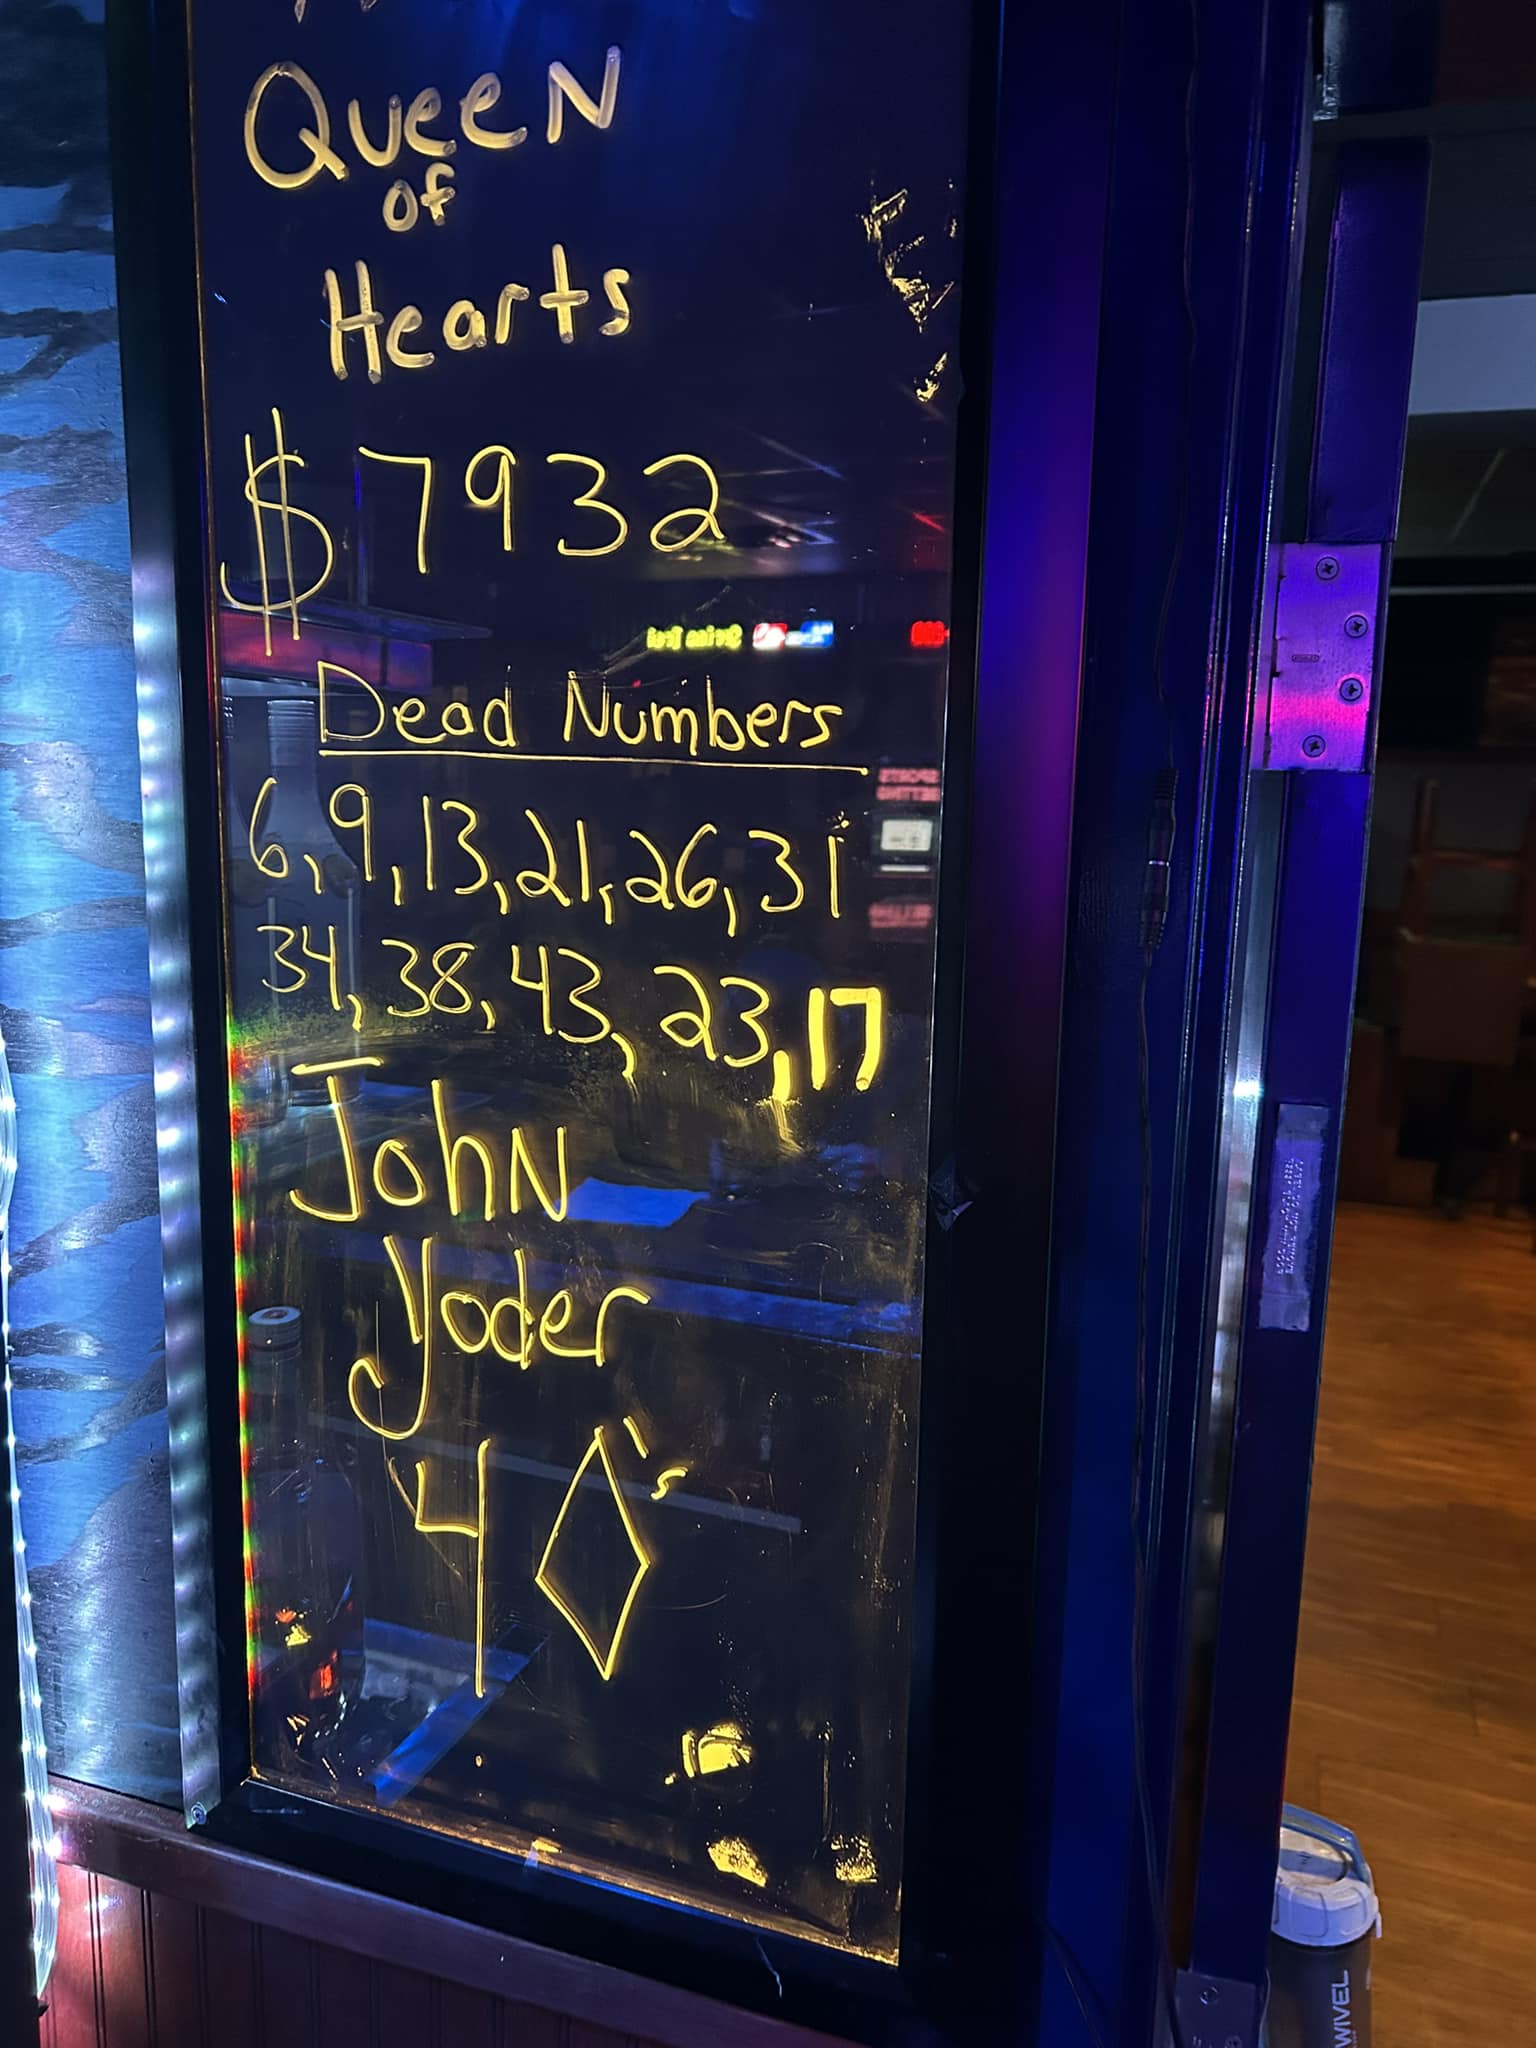 Queen
of
Hearts
$ 7932
Dead Numbers
6, 9, 13, 21, 26, 31
34, 38, 43, 23, 17
John
Yoder
4 ◊'s
SPORTS
BETTING
WIVEL